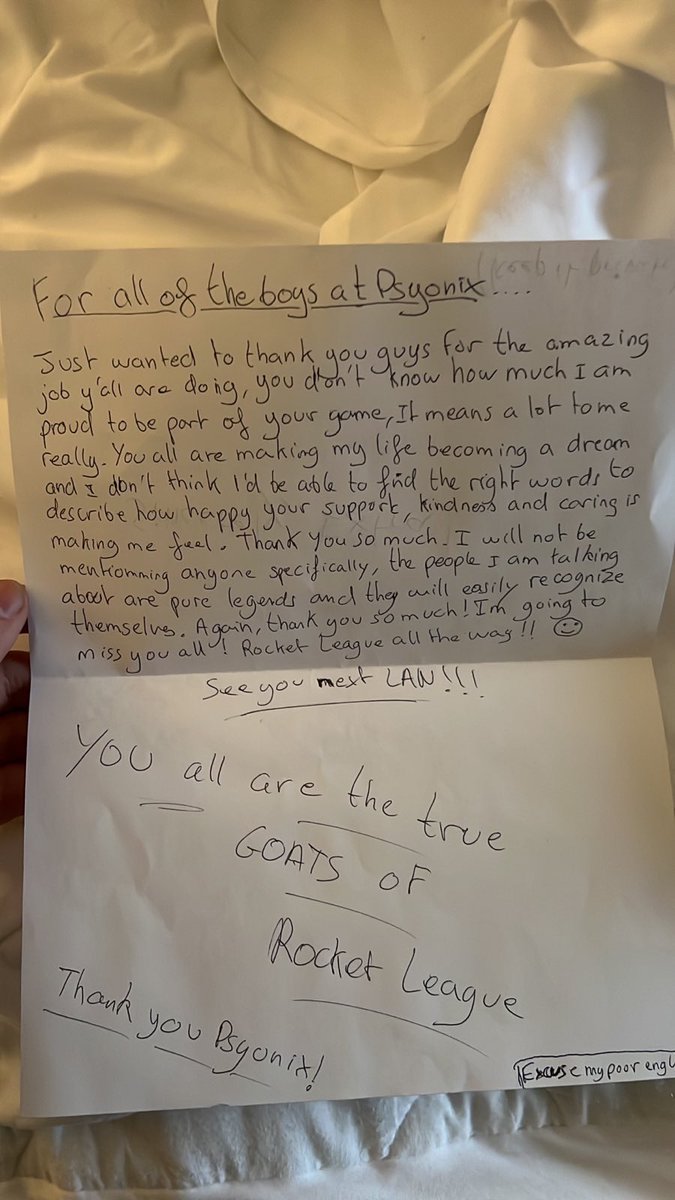 For all of the boys at Psyonix....
Just wanted to thank you guys for the amazing
job y'all are doing, you don't know how much I am
proud to be part of your game, It means a lot to me
really. You all are making my life becoming a dream
and I don't think I'd be able to find the right words to
describe how happy your support, kindness and caring is
making me feel. Thank you so much. I will not be
mentionming anyone specifically, the people I am talking
about are pure legends and they will easily recognize
themselves. Again, thank you so much! Im going to
miss you all! Rocket League all the way!! ☺
See you next LAN!!!
YOU all are the true
GOATS OF
Rocket League
Thank you Psyonix!
Excuse my poor engl